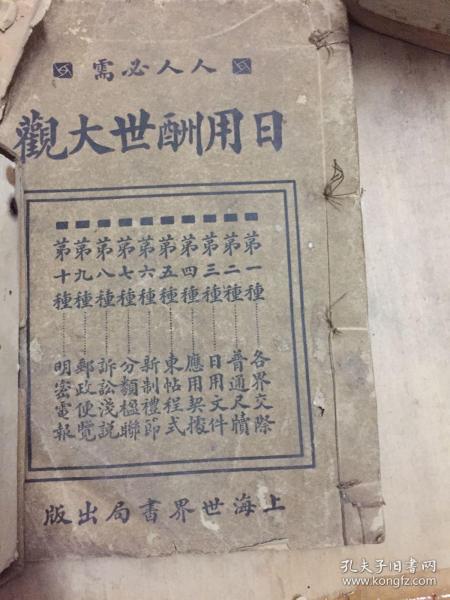 人人必需
日用酬世大觀
第一種 各界交際
第二種 普通尺牘
第三種 日用文件
第四種 應用契據
第五種 柬帖程式
第六種 新制禮節
第七種 分類楹聯
第八種 訴訟淺説
第九種 郵政便覽
第十種 明密電報
上海世界書局出版
孔夫子旧书网
www.kongfz.com